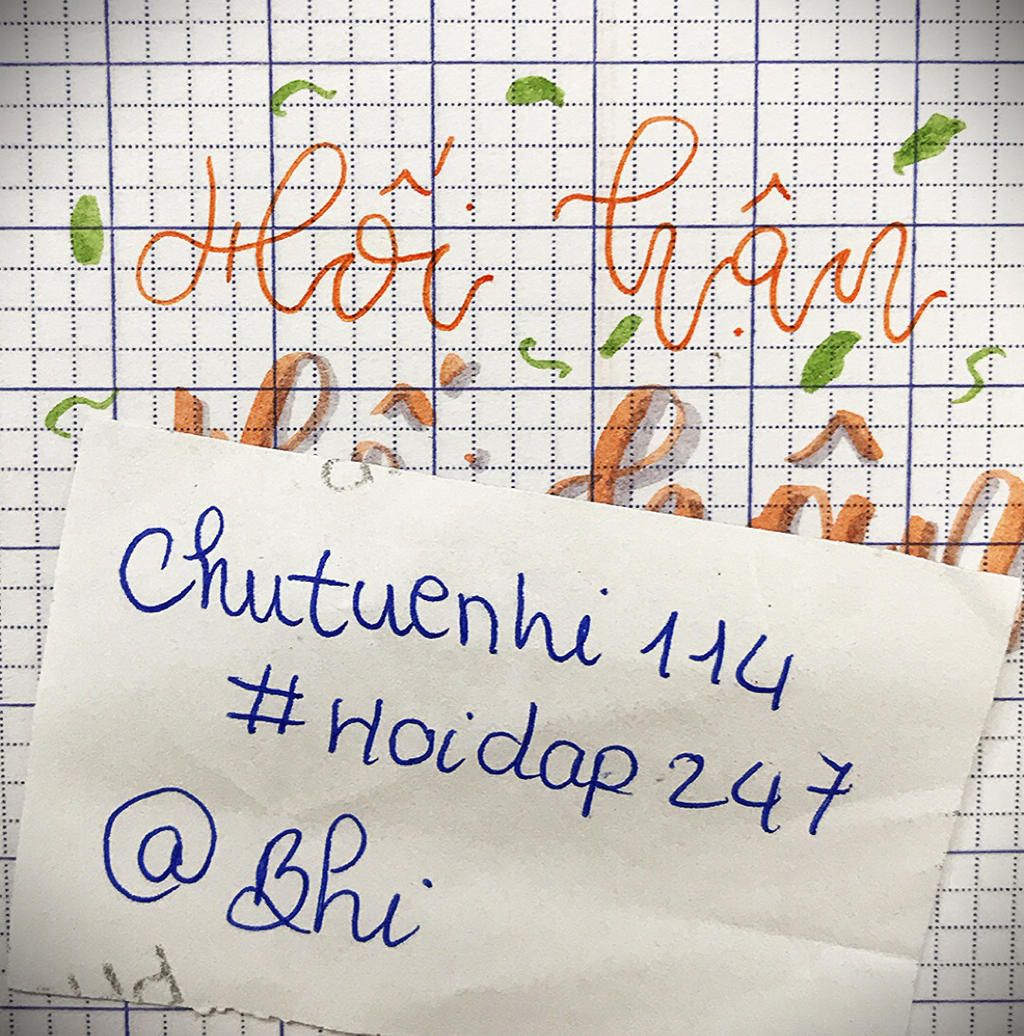 Hối hận
hối hận
Chutuenhi 114
#Hoidap 247
@Bhi